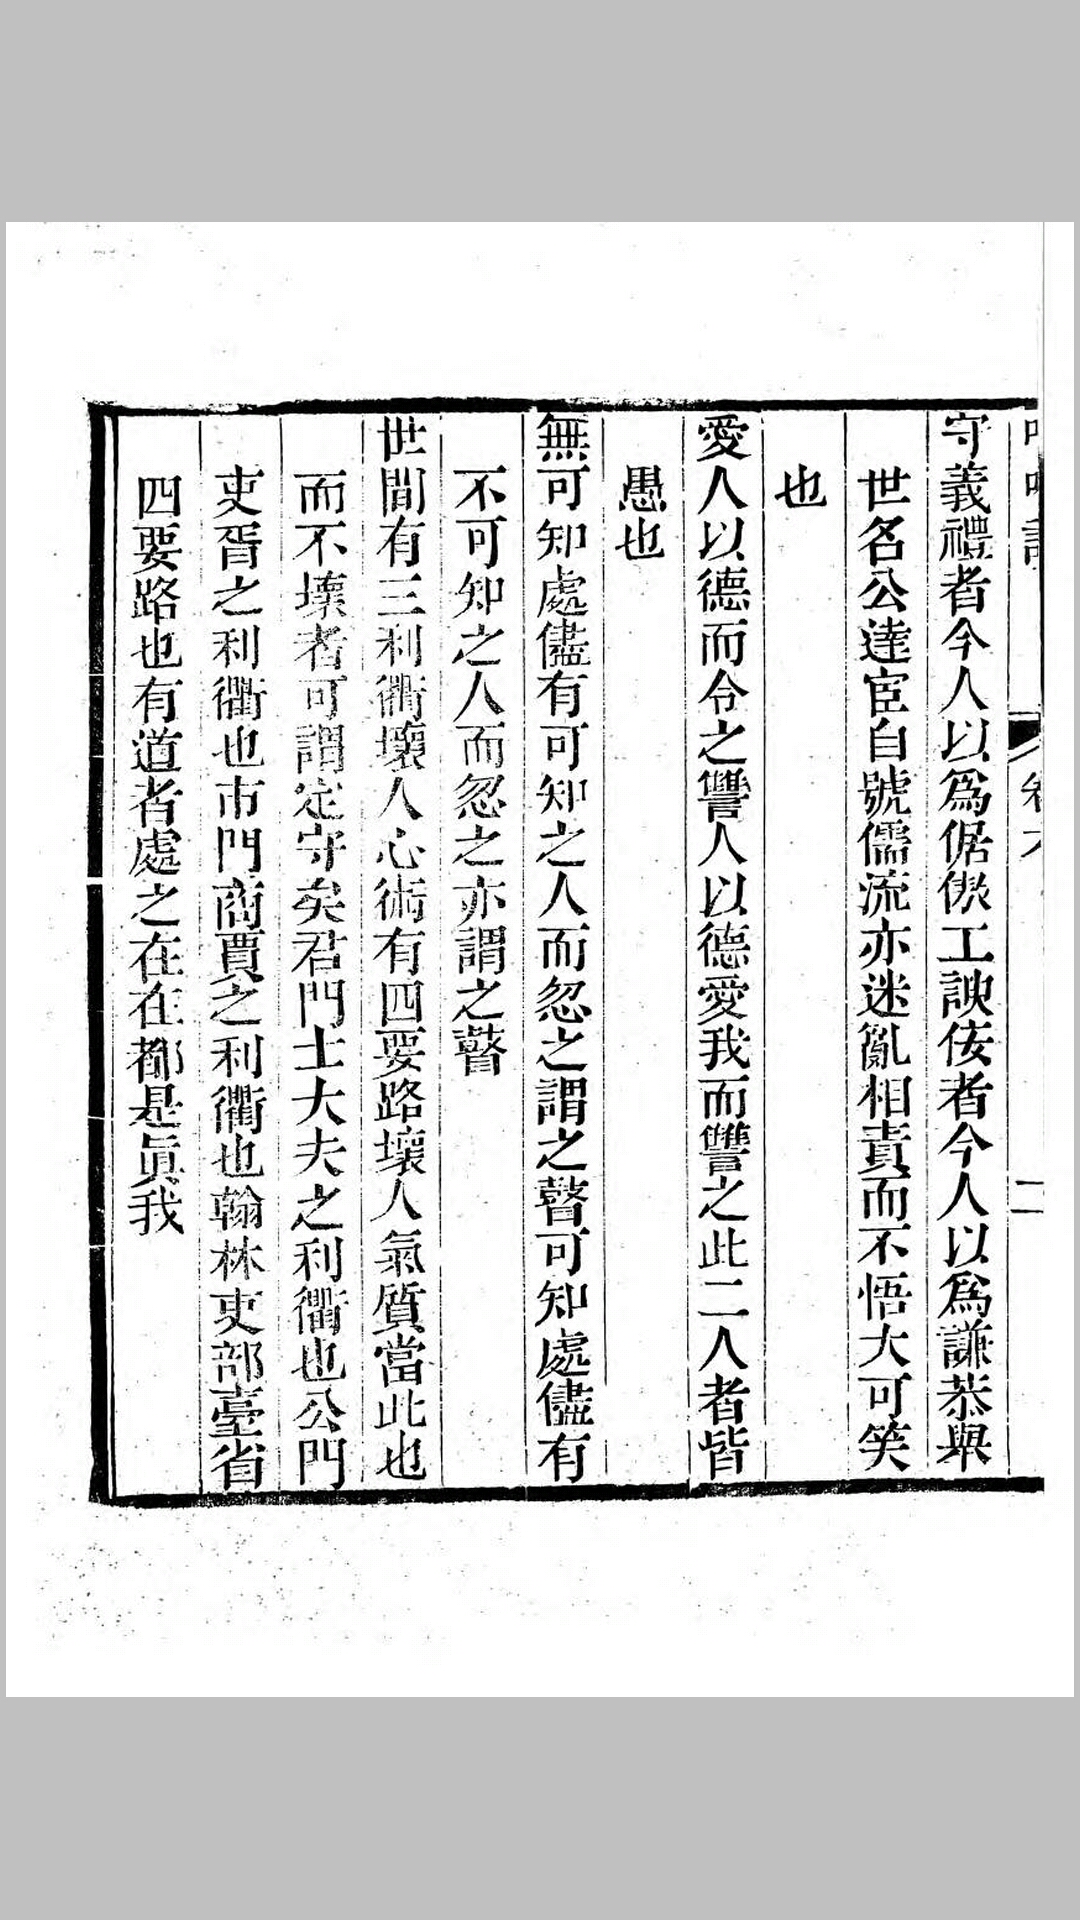 語
卷六
二
守義禮者今人以爲倨傲工諛佞者今人以爲謙恭舉
世名公達宦自號儒流亦迷亂相責而不悟大可笑
也
愛人以德而令之讐人以德愛我而讐之此二人者皆
愚也
無可知處儘有可知之人而忽之謂之瞽可知處儘有
不可知之人而忽之亦謂之瞽
世間有三利衢壞人心術有四要路壞人氣質當此也
而不壞者可謂定守矣君門士大夫之利衢也公門
吏胥之利衢也市門商賈之利衢也翰林吏部臺省
四要路也有道者處之在在都是眞我